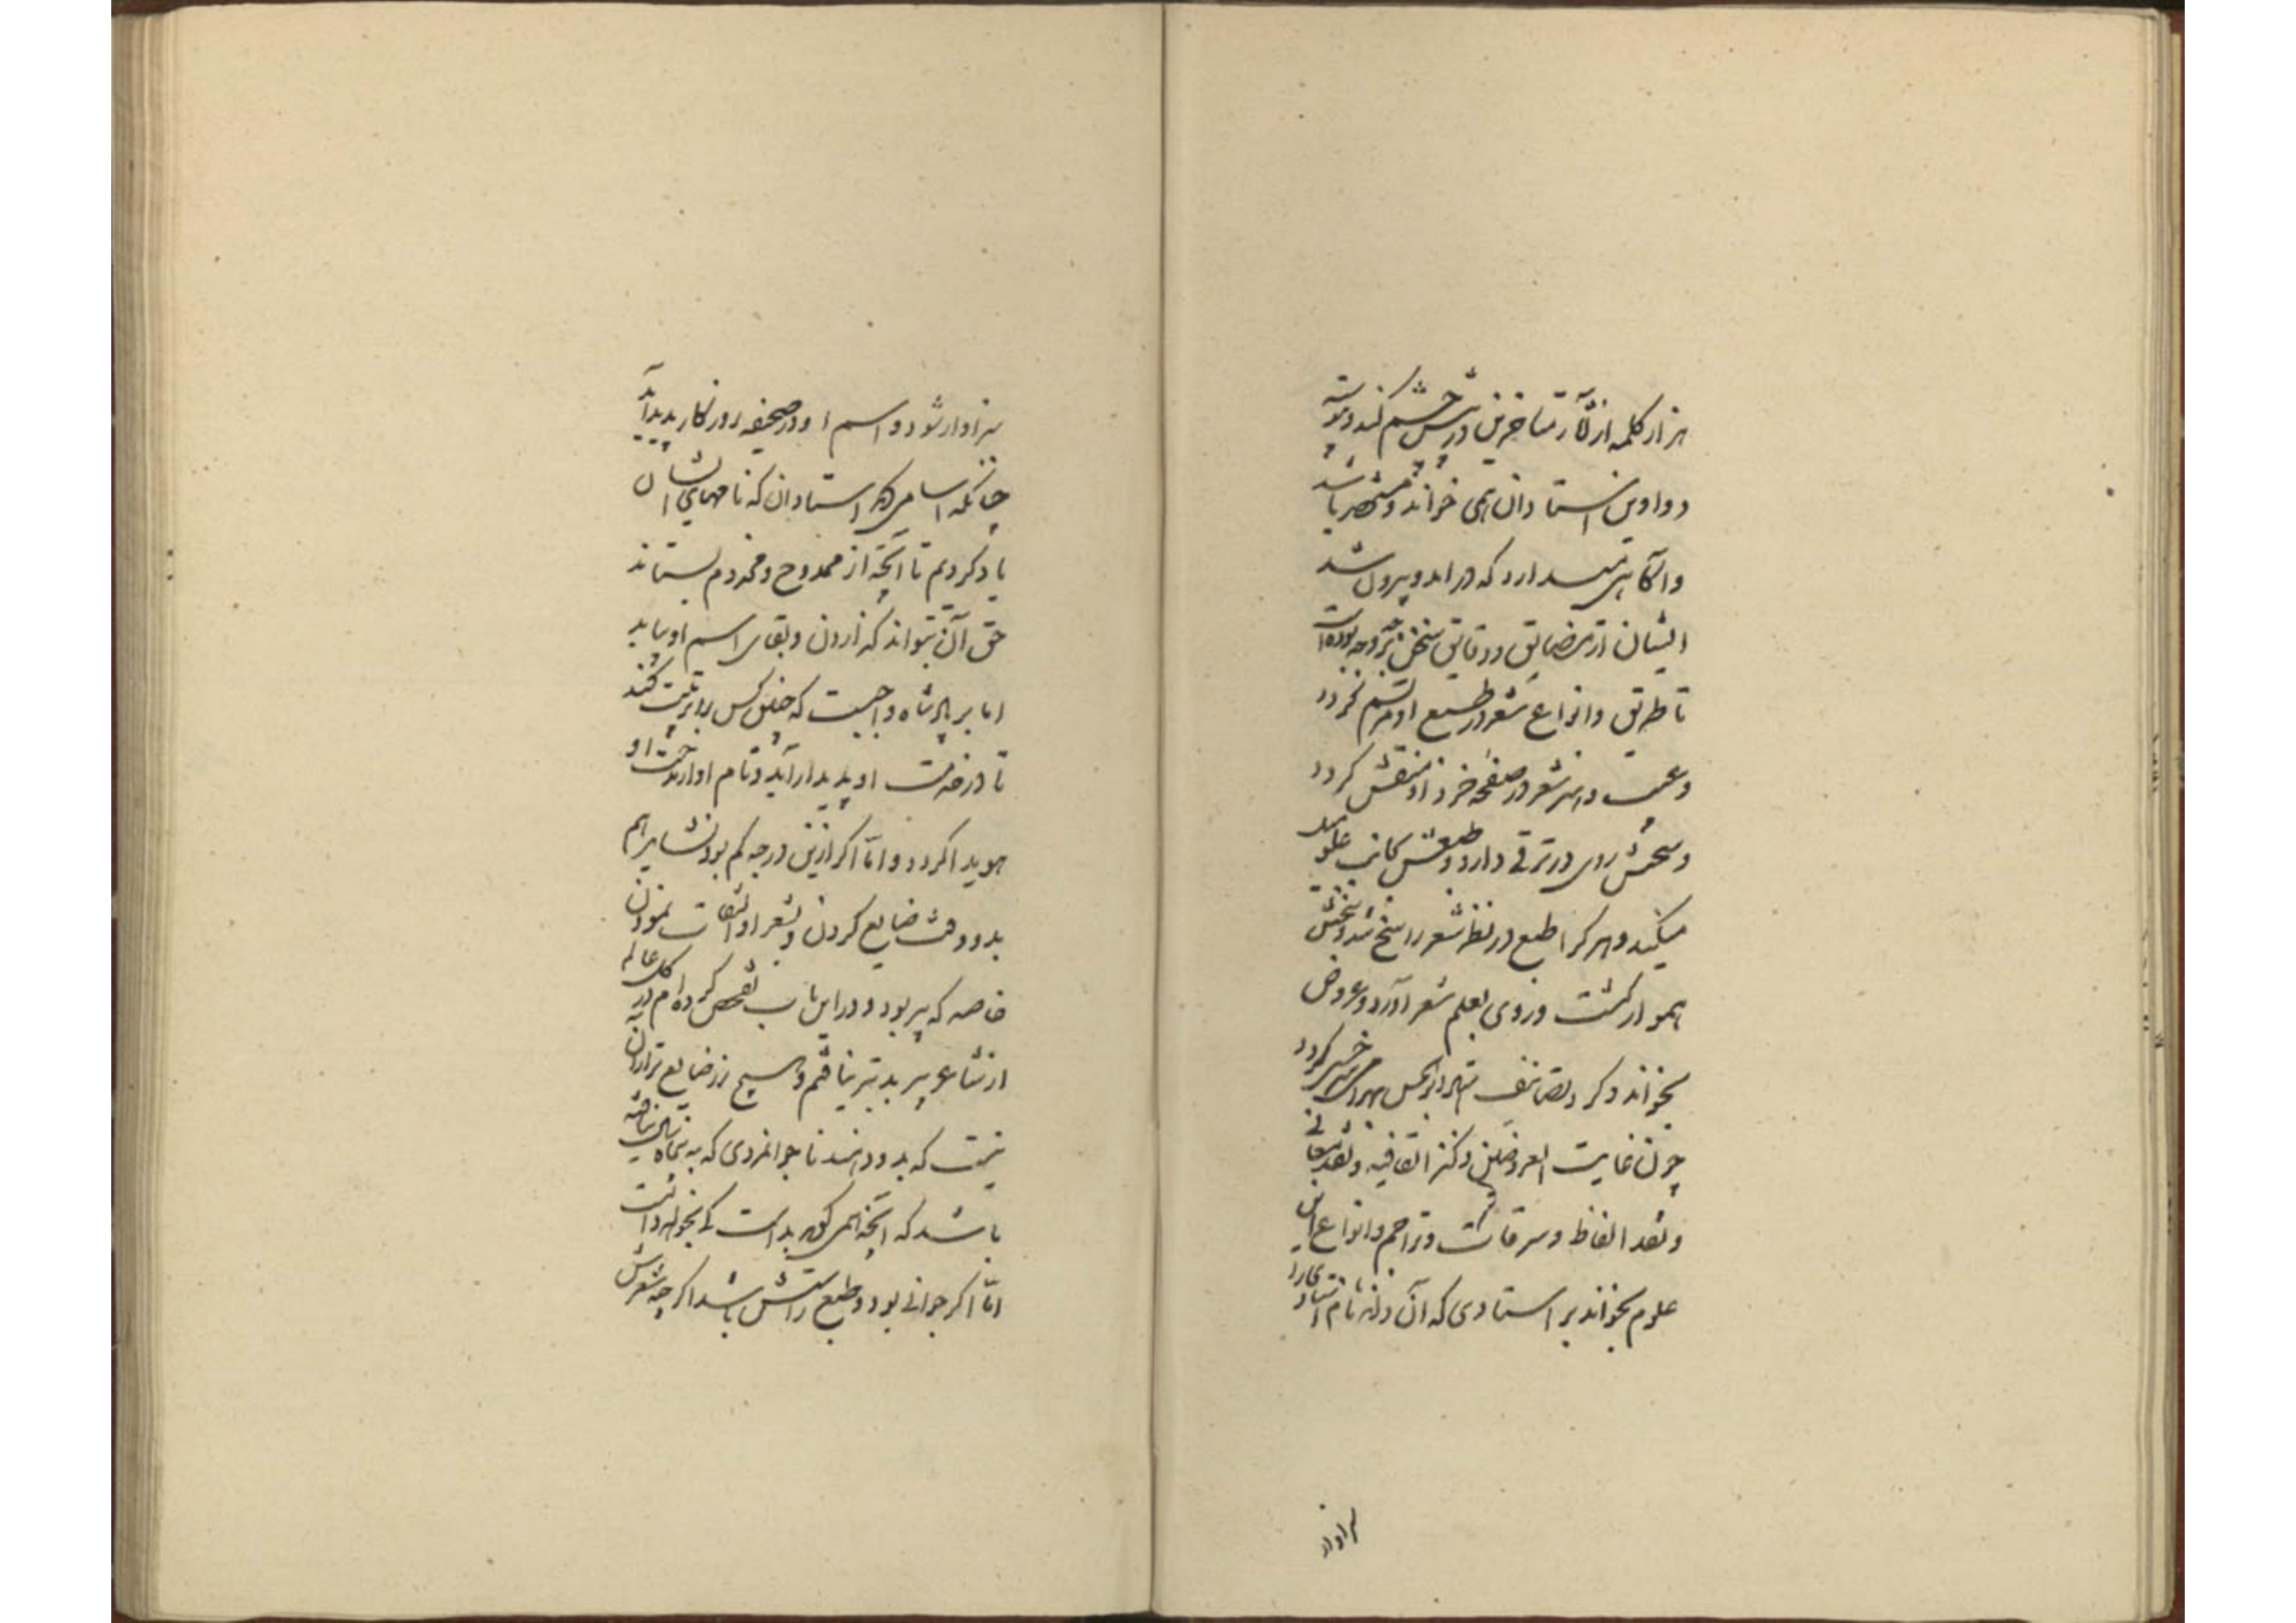 هزار کلمه از آثار متأخرین در پیش چشم کند و پیوسته
دواوین استادان همی خواند و مستحضر باشد
و آگاهی میدارد که درآمد و بیرون شد
ایشان از مضایق و دقایق سخن بر چه وجه بوده است
تا طریق و انواع شعر در طبع او مرتسم گردد
و عیب و هنر شعر در صفحه خرد او منقش گردد
و سخنش روی در ترقی دارد و طبعش بجانب علو میل
میکند و هر کرا طبع در نظم شعر راسخ شد و سخنش
هموار گشت و روی بعلم شعر آورد و عروض
بخواند و گرد تصانیف استاد ابوالحسن بهرامی سرخسی گردد
چون غایت العروضین و کنز القافیه و نقد معانی
و نقد الفاظ و سرقات و تراجم و انواع این
علوم بخواند بر استادی که آن داند نام استادی را
سزاوار
سزاوار شود و اسم او در صحیفه روزگار پدید آید
چنانکه اسامی دیگر استادان که نامهای ایشان
یاد کردیم تا آنچه از ممدوح و مخدوم بستاند
حق آن بتواند گزاردن و بقای اسم او بیابد
اما بر پادشاه واجبست که چنین کس را تربیت کند
تا در خدمت او پدیدار آید و نام او از مدحت او
هویدا گردد و اما اگر ازین درجه کم بود نشاید سیم
بدو و وقت ضایع کردن و بشعر او التفات نمودن
خاصه که پیر بود و در این باب تفحص کرده ام در کل عالم
از شاعر پیر بدتر نیافتم و هیچ زر ضایع تر از آن
نیست که بدو دهند ناجوانمردی که به پنجاه سال ندانسته
باشد که آنچه همی گویم بد است کی بخواهد دانست
اما اگر جوانی بود و طبع راستش باشد اگر چه شعرش